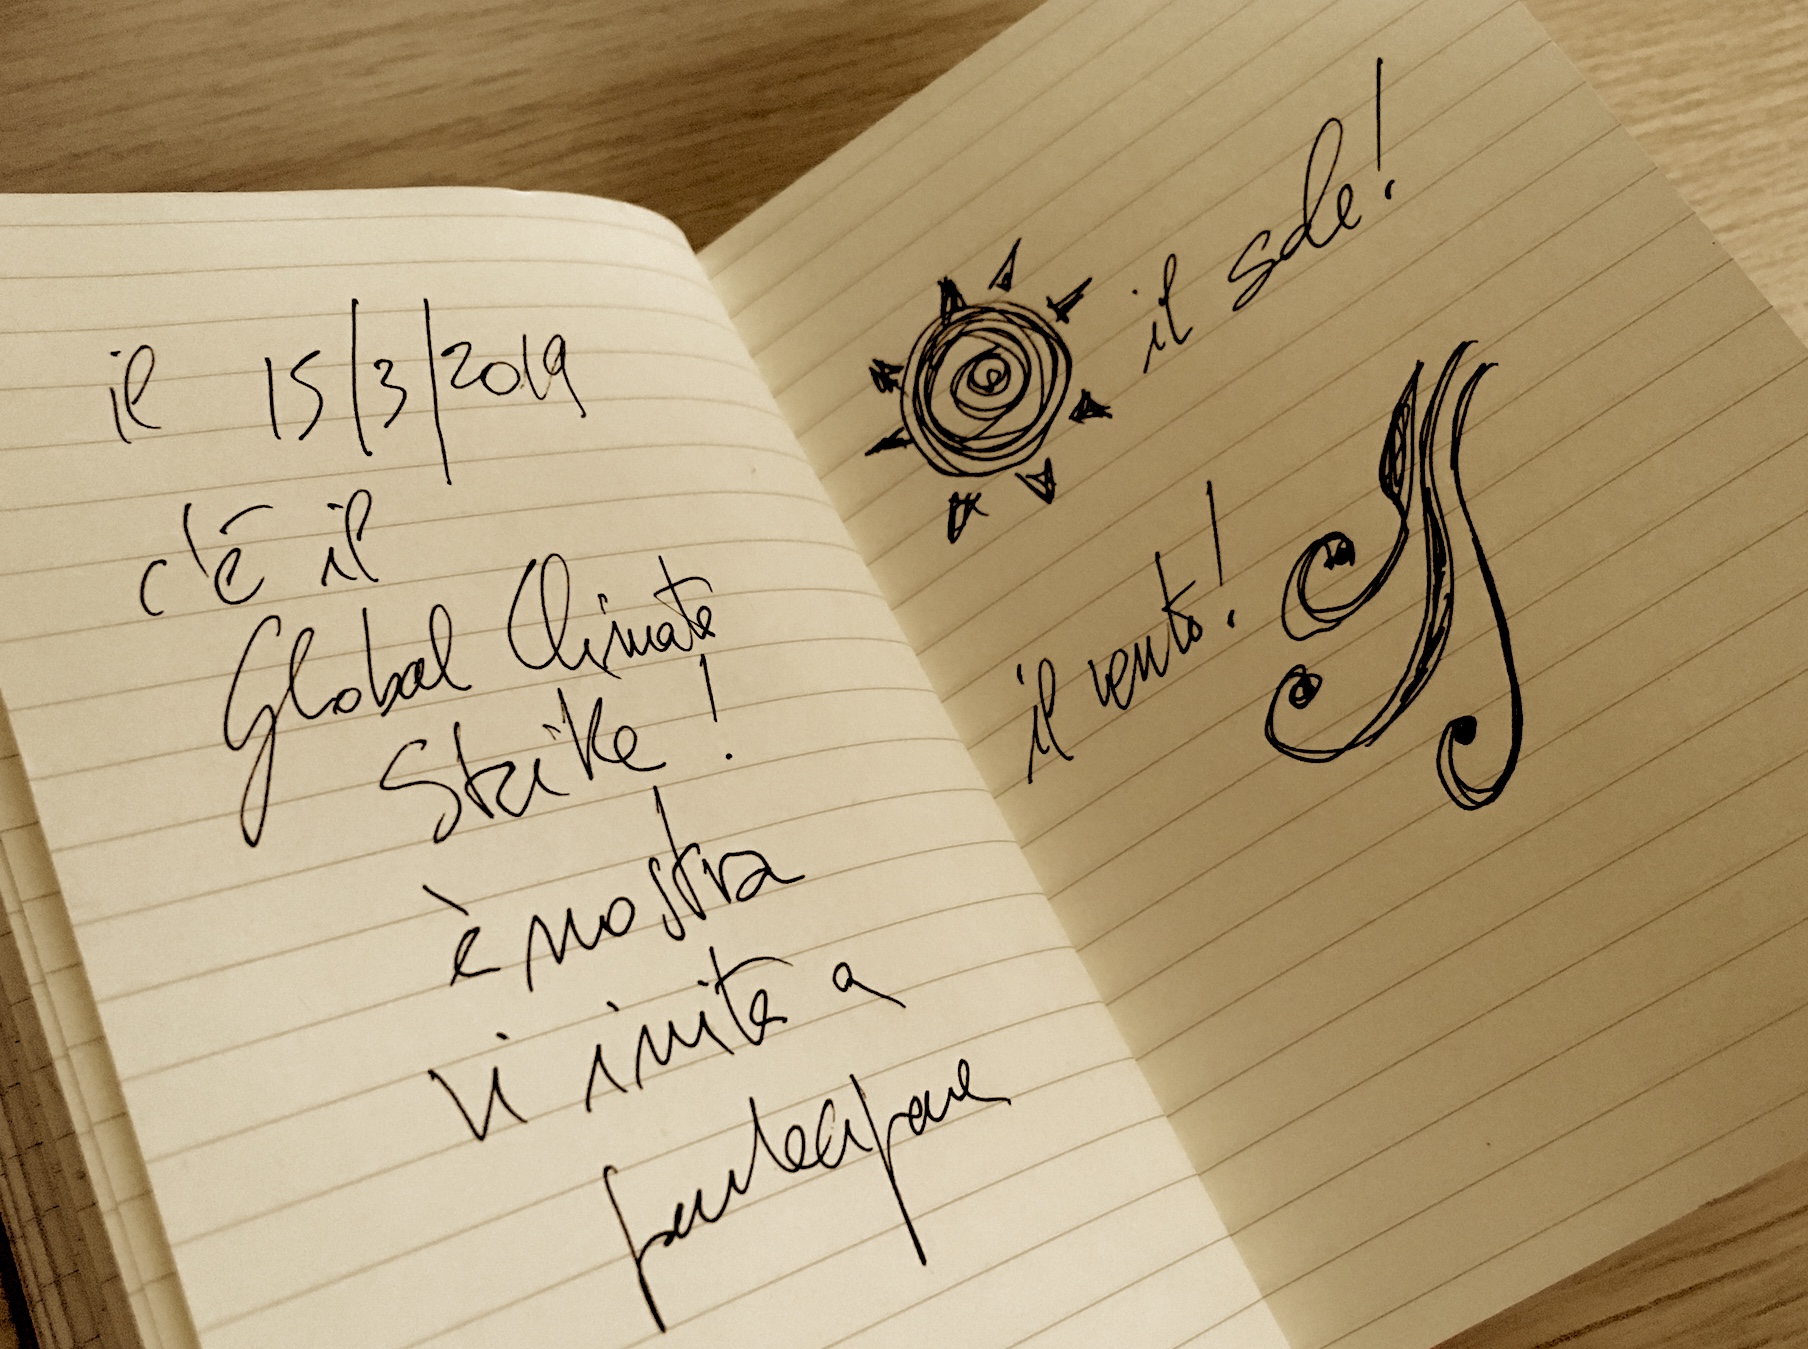 il 15/3/2019
c'é il
Global Climate
Strike!
è nostra
vi invite a
partecipare
il sole!
il vento!